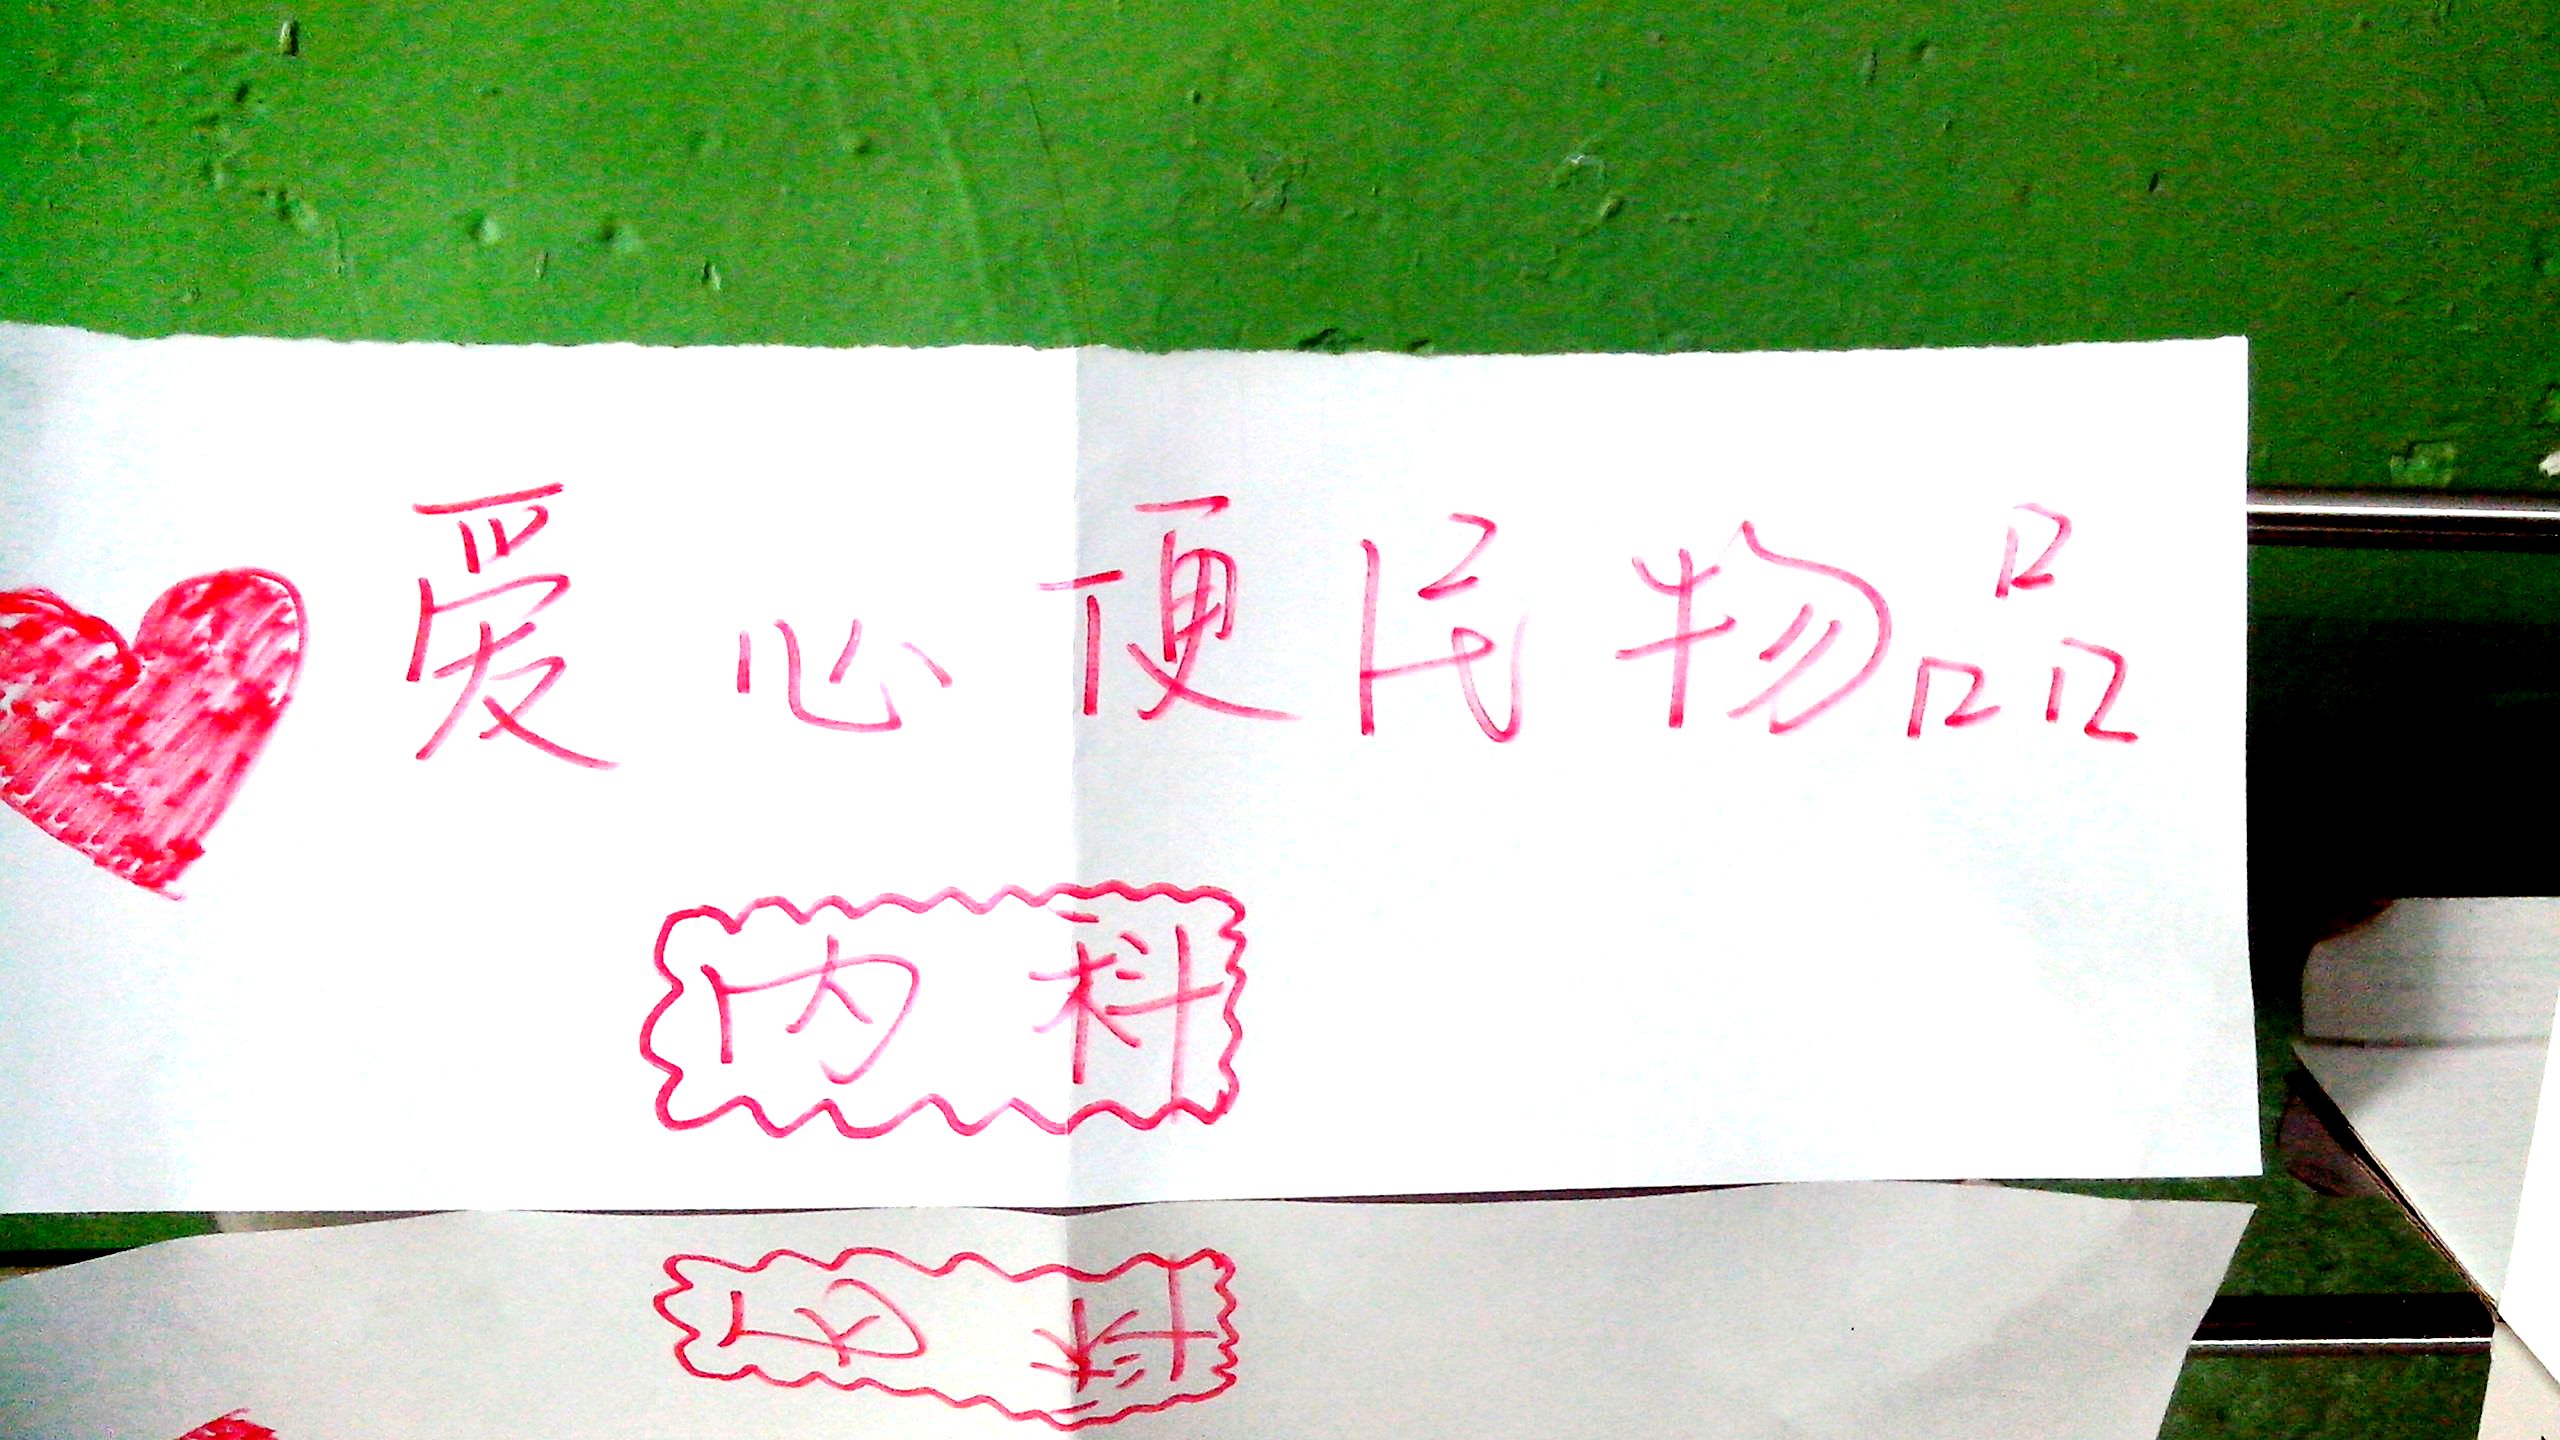 爱心便民物品
内科